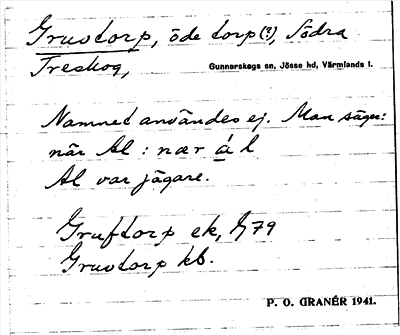 Gruvtorp, öde torp(?), Södra
Treskog,
Gunnarskogs sn, Jösse hd, Värmlands l.
Namnet användes ej. Man säger:
när Al : nær á l
Al var jägare.
Gruftorp ek, 79
Gruvtorp kb.
P. O. GRANÉR 1941.